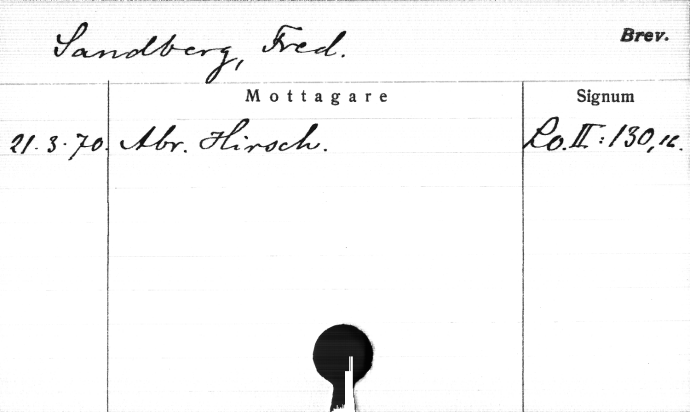 Sandberg, Fred.
Brev.
Mottagare
Signum
21.3.70. Abr. Hirsch. Lo.II:130,16.